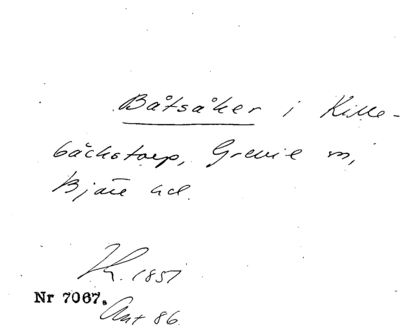 Båtsåker i Kille-
bäckstorp, Grevie sn,
Bjäre hd.
1851
Nr 7067.
Akt 86.